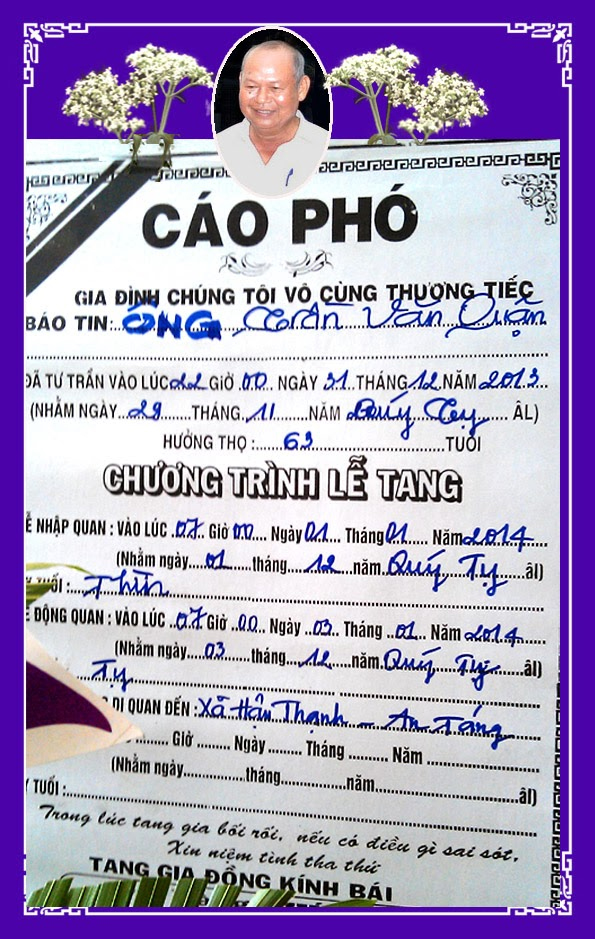 CÁO PHÓ
GIA ĐÌNH CHÚNG TÔI VÔ CÙNG THƯƠNG TIẾC
BÁO TIN: ÔNG Trần Văn Quận
ĐÃ TỪ TRẦN VÀO LÚC 22 GIỜ 00 NGÀY 31 THÁNG 12 NĂM 2013
(NHẰM NGÀY 29 THÁNG 11 NĂM Quý Tỵ ÂL)
HƯỞNG THỌ: 63 TUỔI
CHƯƠNG TRÌNH LỄ TANG
NHẬP QUAN: VÀO LÚC 07 Giờ 00 Ngày 01 Tháng 01 Năm 2014
(Nhằm ngày 01 tháng 12 năm Quý Tỵ âl)
TUỔI: Thìn
ĐỘNG QUAN: VÀO LÚC 07 Giờ 00 Ngày 03 Tháng 01 Năm 2014
(Nhằm ngày 03 tháng 12 năm Quý Tỵ âl)
Tỵ
DI QUAN ĐẾN: Xã Hậu Thạnh - An Táng
Giờ Ngày Tháng Năm
(Nhằm ngày tháng năm âl)
TUỔI:
Trong lúc tang gia bối rối, nếu có điều gì sai sót,
Xin niệm tình tha thứ
TANG GIA ĐỒNG KÍNH BÁI